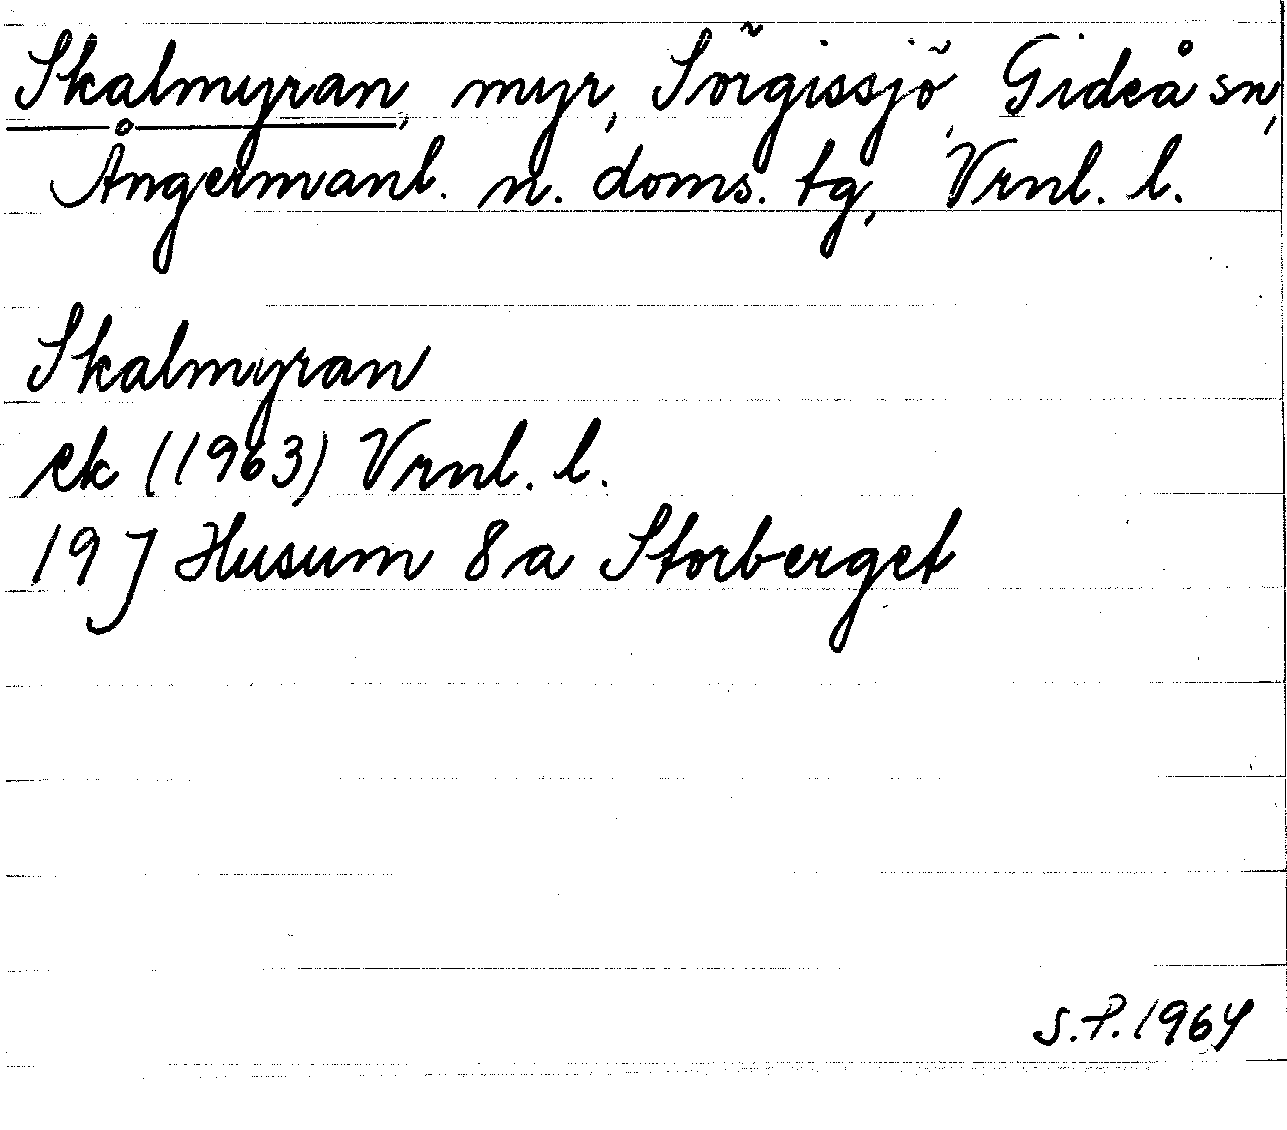 Skalmyran, myr, Sörgissjö, Gideå sn,
Ångermanl. n. doms. tg, Vrnl. l.
Skalmyran
ek (1963) Vrnl. l.
19 J Husum 8 a Storberget
S.P. 1964